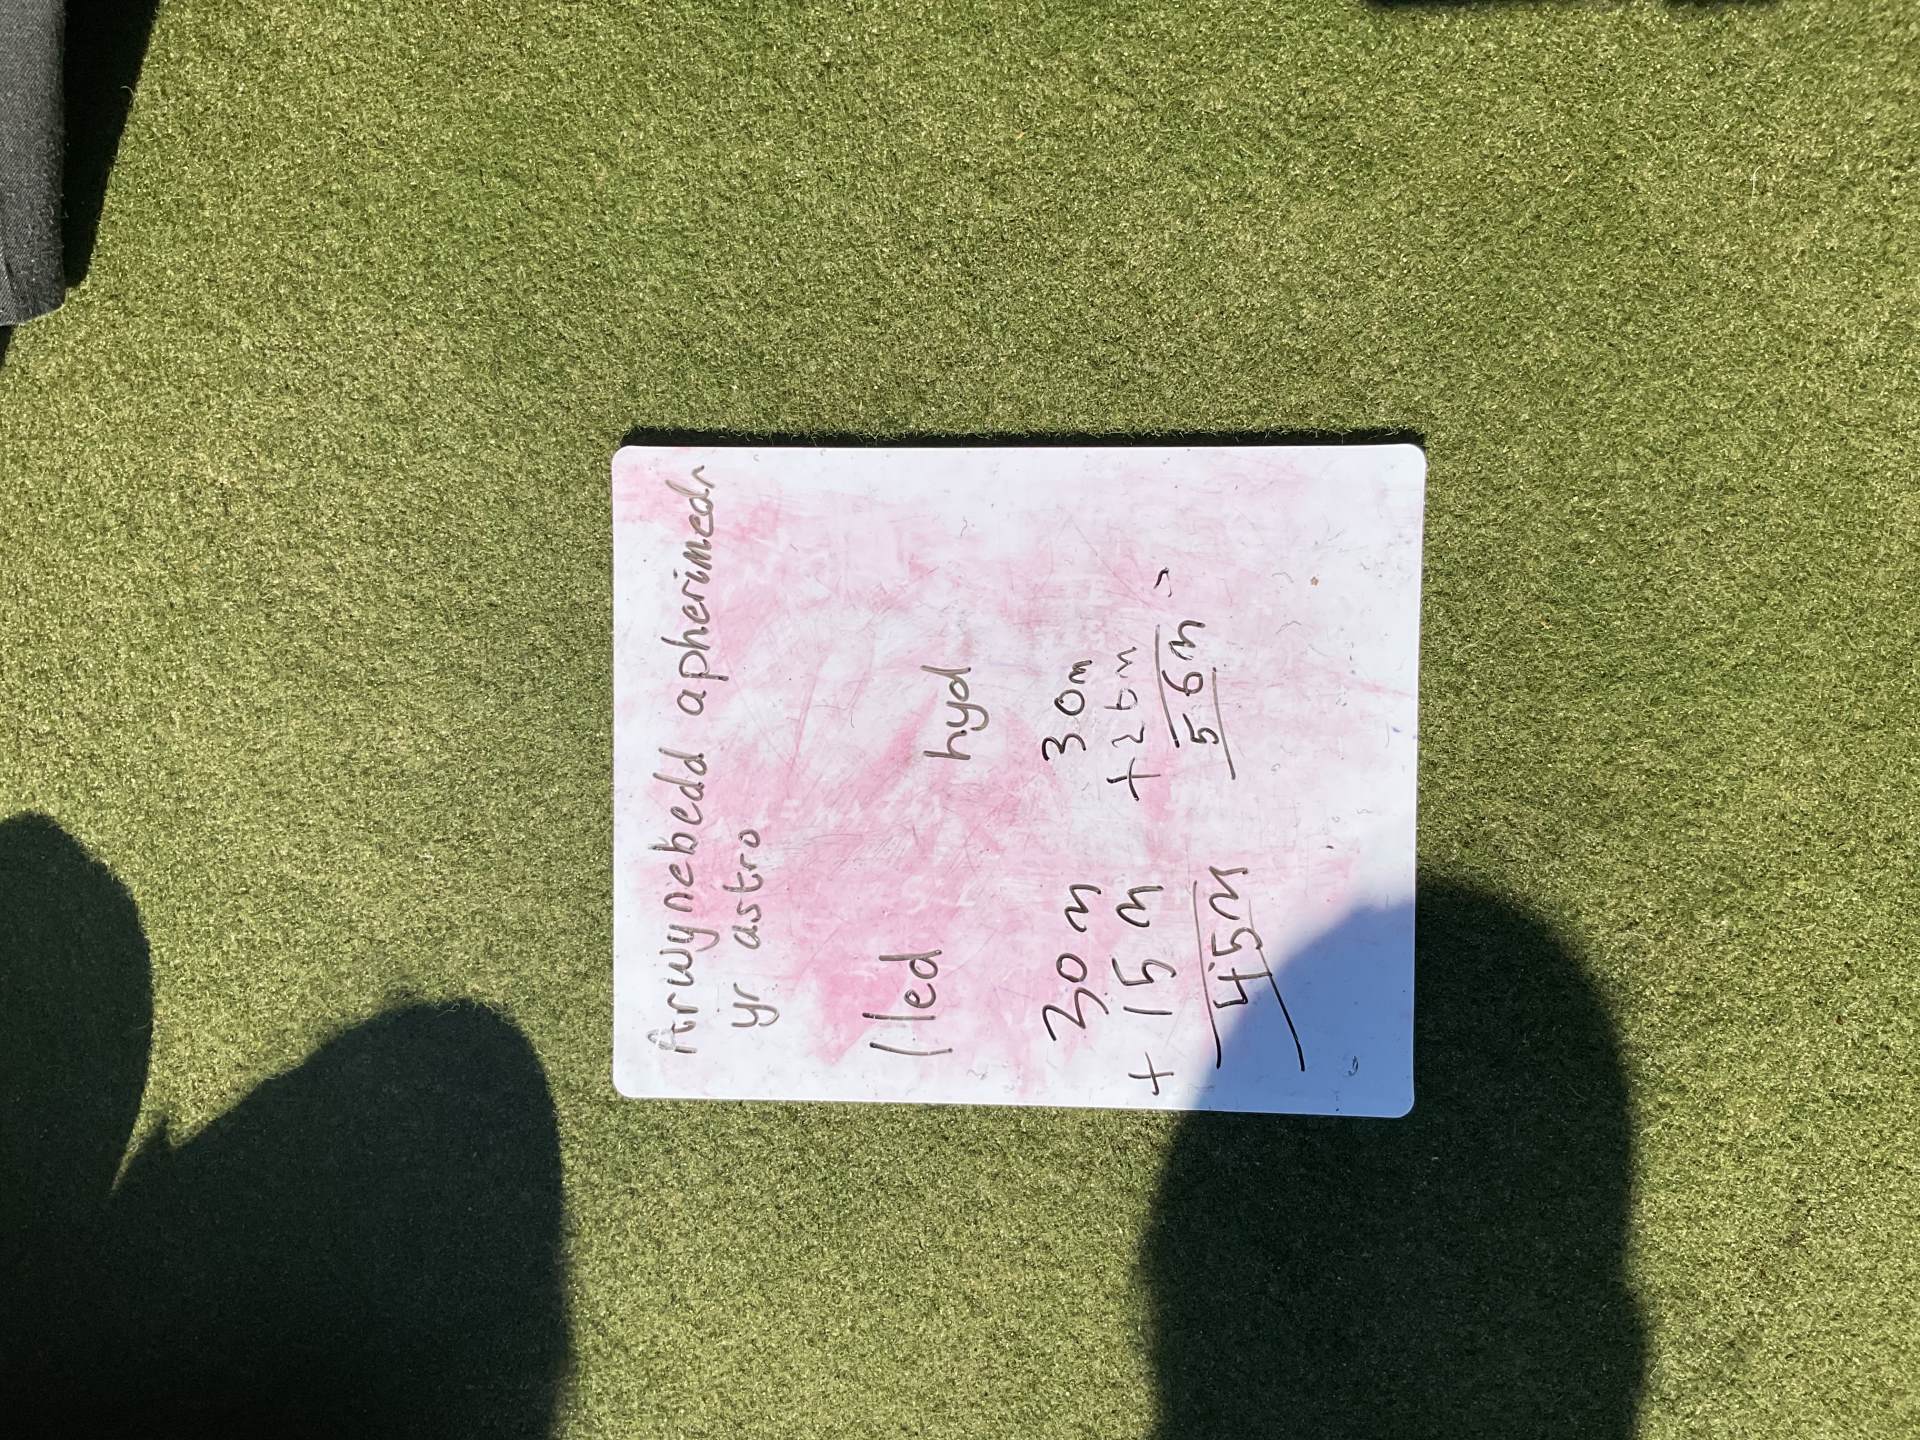 Arwynebedd apherimedr
yr astro
lled
hyd
30m
+ 15m
45m
30m
+ 26m
56m